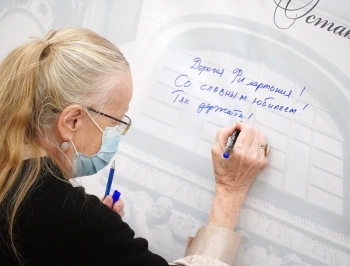 Остав
Дорогая Филармония!
Со славным юбилеем!
Так держать!